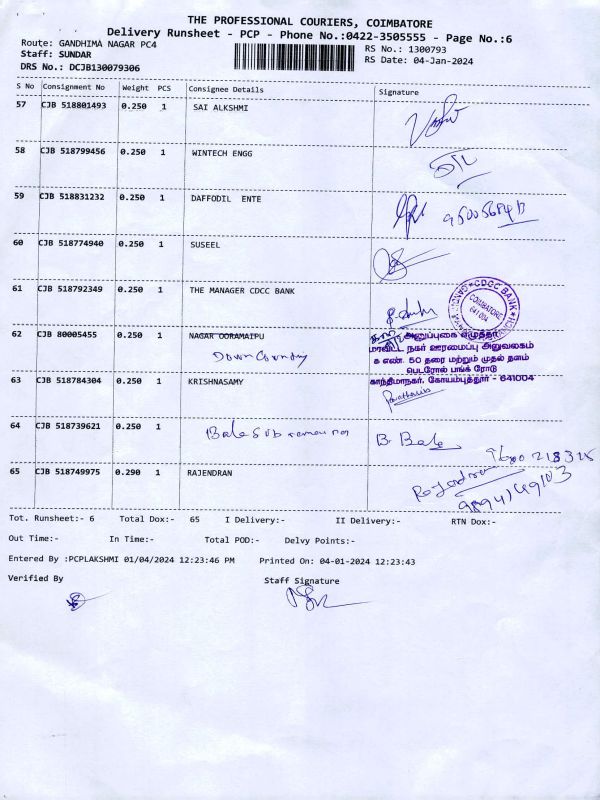 THE PROFESSIONAL COURIERS, COIMBATORE
Delivery Runsheet - PCP - Phone No.:0422-3505555 - Page No.:6
Route: GANDHIMA NAGAR PC4
RS No.: 1300793
Staff: SUNDAR
RS Date: 04-Jan-2024
DRS No.: DCJB130079306
S No Consignment No Weight PCS Consignee Details Signature
57 CJB 518801493 0.250 1 SAI ALKSHMI
58 CJB 518799456 0.250 1 WINTECH ENGG
59 CJB 518831232 0.250 1 DAFFODIL ENTE
60 CJB 518774940 0.250 1 SUSEEL
61 CJB 518792349 0.250 1 THE MANAGER CDCC BANK
CDCC BANK
COIMBATORE
641 004
62 CJB 80005455 0.250 1 NAGAR OORAMAIPU
அனுப்புகை எழுத்தர்
மாவட்ட நகர் ஊரமைப்பு அலுவலகம்
எண். 50 தரை மற்றும் முதல் தளம்
பெட்ரோல் பங்க் ரோடு
காந்திமாநகர், கோயம்புத்தூர் - 641004
63 CJB 518784304 0.250 1 KRISHNASAMY
64 CJB 518739621 0.250 1 Bala Subramanian
B. Bala
9600 218325
65 CJB 518749975 0.290 1 RAJENDRAN
Rajendran
9894149103
Tot. Runsheet:- 6 Total Dox:- 65 I Delivery:- II Delivery:- RTN Dox:-
Out Time:- In Time:- Total POD:- Delvy Points:-
Entered By :PCPLAKSHMI 01/04/2024 12:23:46 PM Printed On: 04-01-2024 12:23:43
Verified By Staff Signature